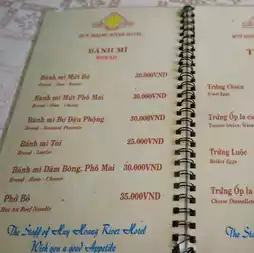 HUY HOANG RIVER HOTEL
BÁNH MÌ
BREAD
Bánh mì Mứt Bơ 30.000VND
Bread - Jam - Butter
Bánh mì Mứt Phô Mai 30.000VND
Bread - Jam - Cheese
Bánh mì Bơ Đậu Phộng 30.000VND
Bánh mì Tỏi 25.000VND
Bread - Garlic
Bánh mì Dăm Bông, Phô Mai 30.000VND
Bread - Ham - Cheese
Phở Bò 35.000VND
The Staff of Huy Hoang River Hotel
Wish you a good Appetite
T
Trứng Chiên
Fried Eggs
Trứng Ốp la
Trứng Luộc
Boiled Eggs
Trứng Ốp la
Cheese
The Staff